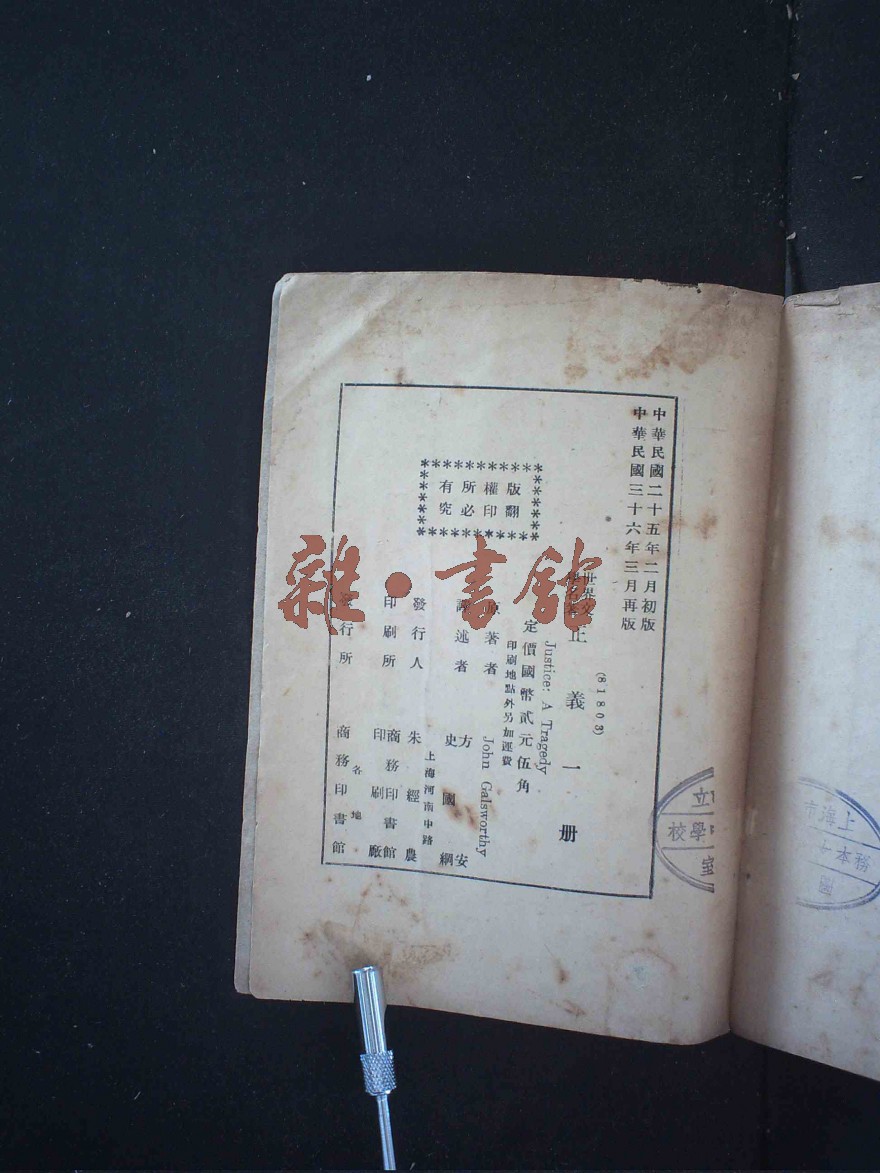 中華民國二十五年二月初版
中華民國三十六年三月再版
(81803)
世界文學名著 正義 一冊
Justice: A Tragedy
定價國幣貳元伍角
印刷地點外另加運費
版權所有
翻印必究
原著者 John Galsworthy
譯述者 方安
史國綱
發行人 朱經農
上海河南中路
印刷所 商務印書館
印刷廠
發行所 各地
商務印書館
雜·書館
上海市
務本
圖
立
學校
室